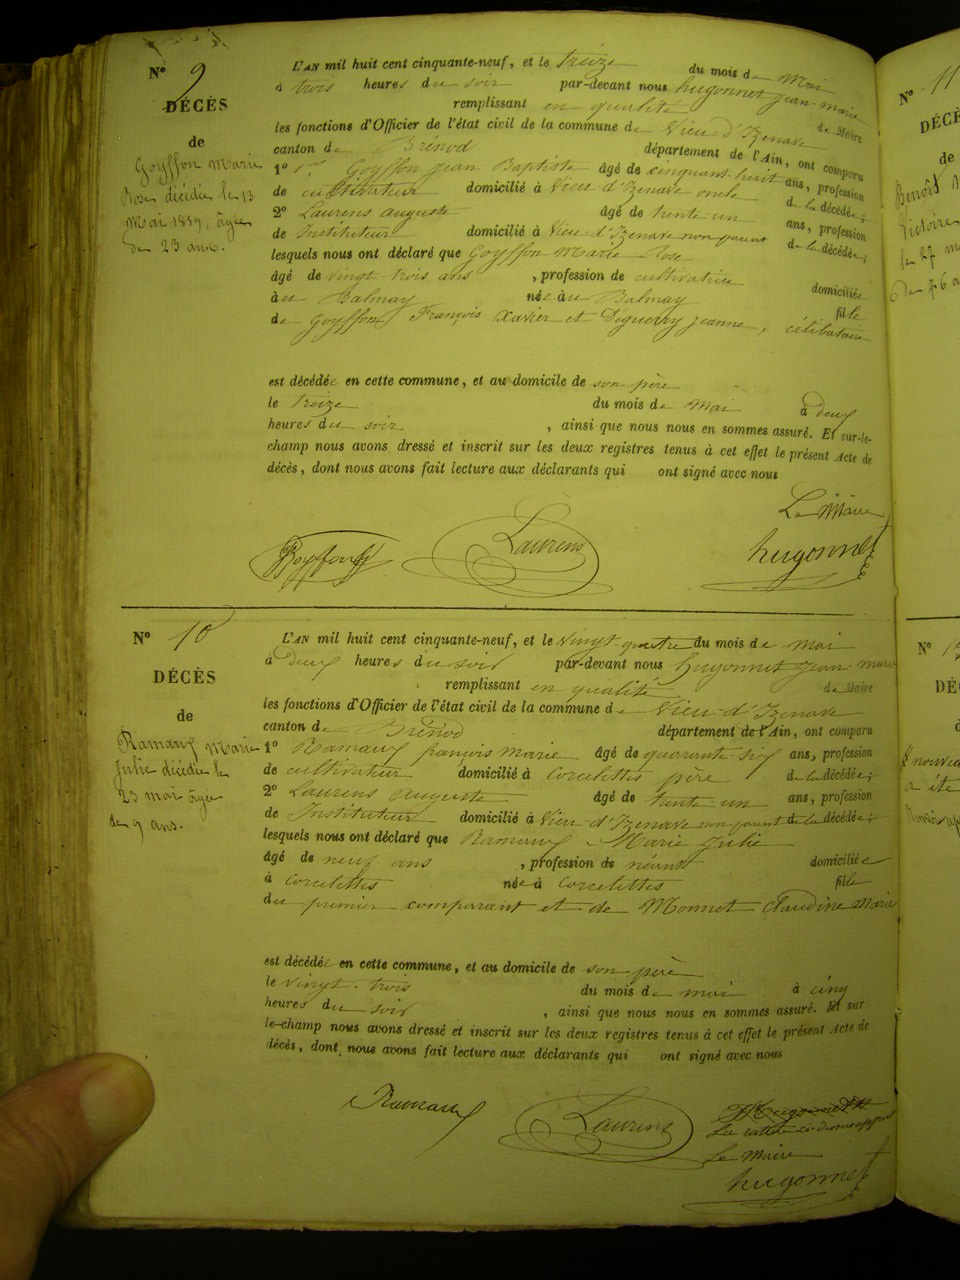 Nº 9
DÉCÈS
de
Goyffon Marie
Rose décédée le 13
Mai 1859, âgée
de 23 ans.
L'AN mil huit cent cinquante-neuf, et le treize du mois de Mai
à trois heures du soir par-devant nous hugonnet jean marie
remplissant en qualité de Maire
les fonctions d'Officier de l'état civil de la commune de Vieu d'Izenave
canton de Brénod département de l'Ain, ont comparu
1º Goyffon jean Baptiste âgé de cinquante huit ans, profession
de cultivateur domicilié à Vieu d'Izenave oncle de la décédée;
2º Laurens auguste âgé de trente un ans, profession
de Instituteur domicilié à Vieu-d'Izenave non parent de la décédée;
lesquels nous ont déclaré que Goyffon Marie Rose
âgé de vingt trois ans, profession de cultivatrice domiciliée
au Balmay née au Balmay fille
de Goyffon François Xavier et Déguerry jeanne, célibataire
est décédée en cette commune, et au domicile de son père
le treize du mois de mai à deux
heures du soir, ainsi que nous nous en sommes assuré. Et sur-le-
champ nous avons dressé et inscrit sur les deux registres tenus à cet effet le présent Acte de
décès, dont nous avons fait lecture aux déclarants qui ont signé avec nous
Le Maire
Goyffon Laurens hugonnet
Nº 10
DÉCÈS
de
Ramaux Marie
Julie décédée le
23 mai âgée
de 9 ans.
L'AN mil huit cent cinquante-neuf, et le vingt-quatre du mois de mai
à deux heures du soir par-devant nous hugonnet jean marie
remplissant en qualité de Maire
les fonctions d'Officier de l'état civil de la commune de Vieu-d'Izenave
canton de Brénod département de l'Ain, ont comparu
1º Ramaux françois marie âgé de quarante-six ans, profession
de cultivateur domicilié à Corcelettes père de la décédée;
2º Laurens auguste âgé de trente un ans, profession
de Instituteur domicilié à Vieu d'Izenave non parent de la décédée;
lesquels nous ont déclaré que Ramaux Marie Julie
âgé de neuf ans, profession de néant domiciliée
à corcelettes née à corcelettes fille
du premier comparant et de Monnet Claudine Marie
est décédée en cette commune, et au domicile de son père
le vingt-trois du mois de mai à cinq
heures du soir, ainsi que nous nous en sommes assuré. Et sur-
le-champ nous avons dressé et inscrit sur les deux registres tenus à cet effet le présent Acte de
décès, dont nous avons fait lecture aux déclarants qui ont signé avec nous
Ramaux Laurens
Le Maire
hugonnet
Nº 11
DÉCÈS
de
Benoît
Victoire
le 27
Nº
DÉ
a été